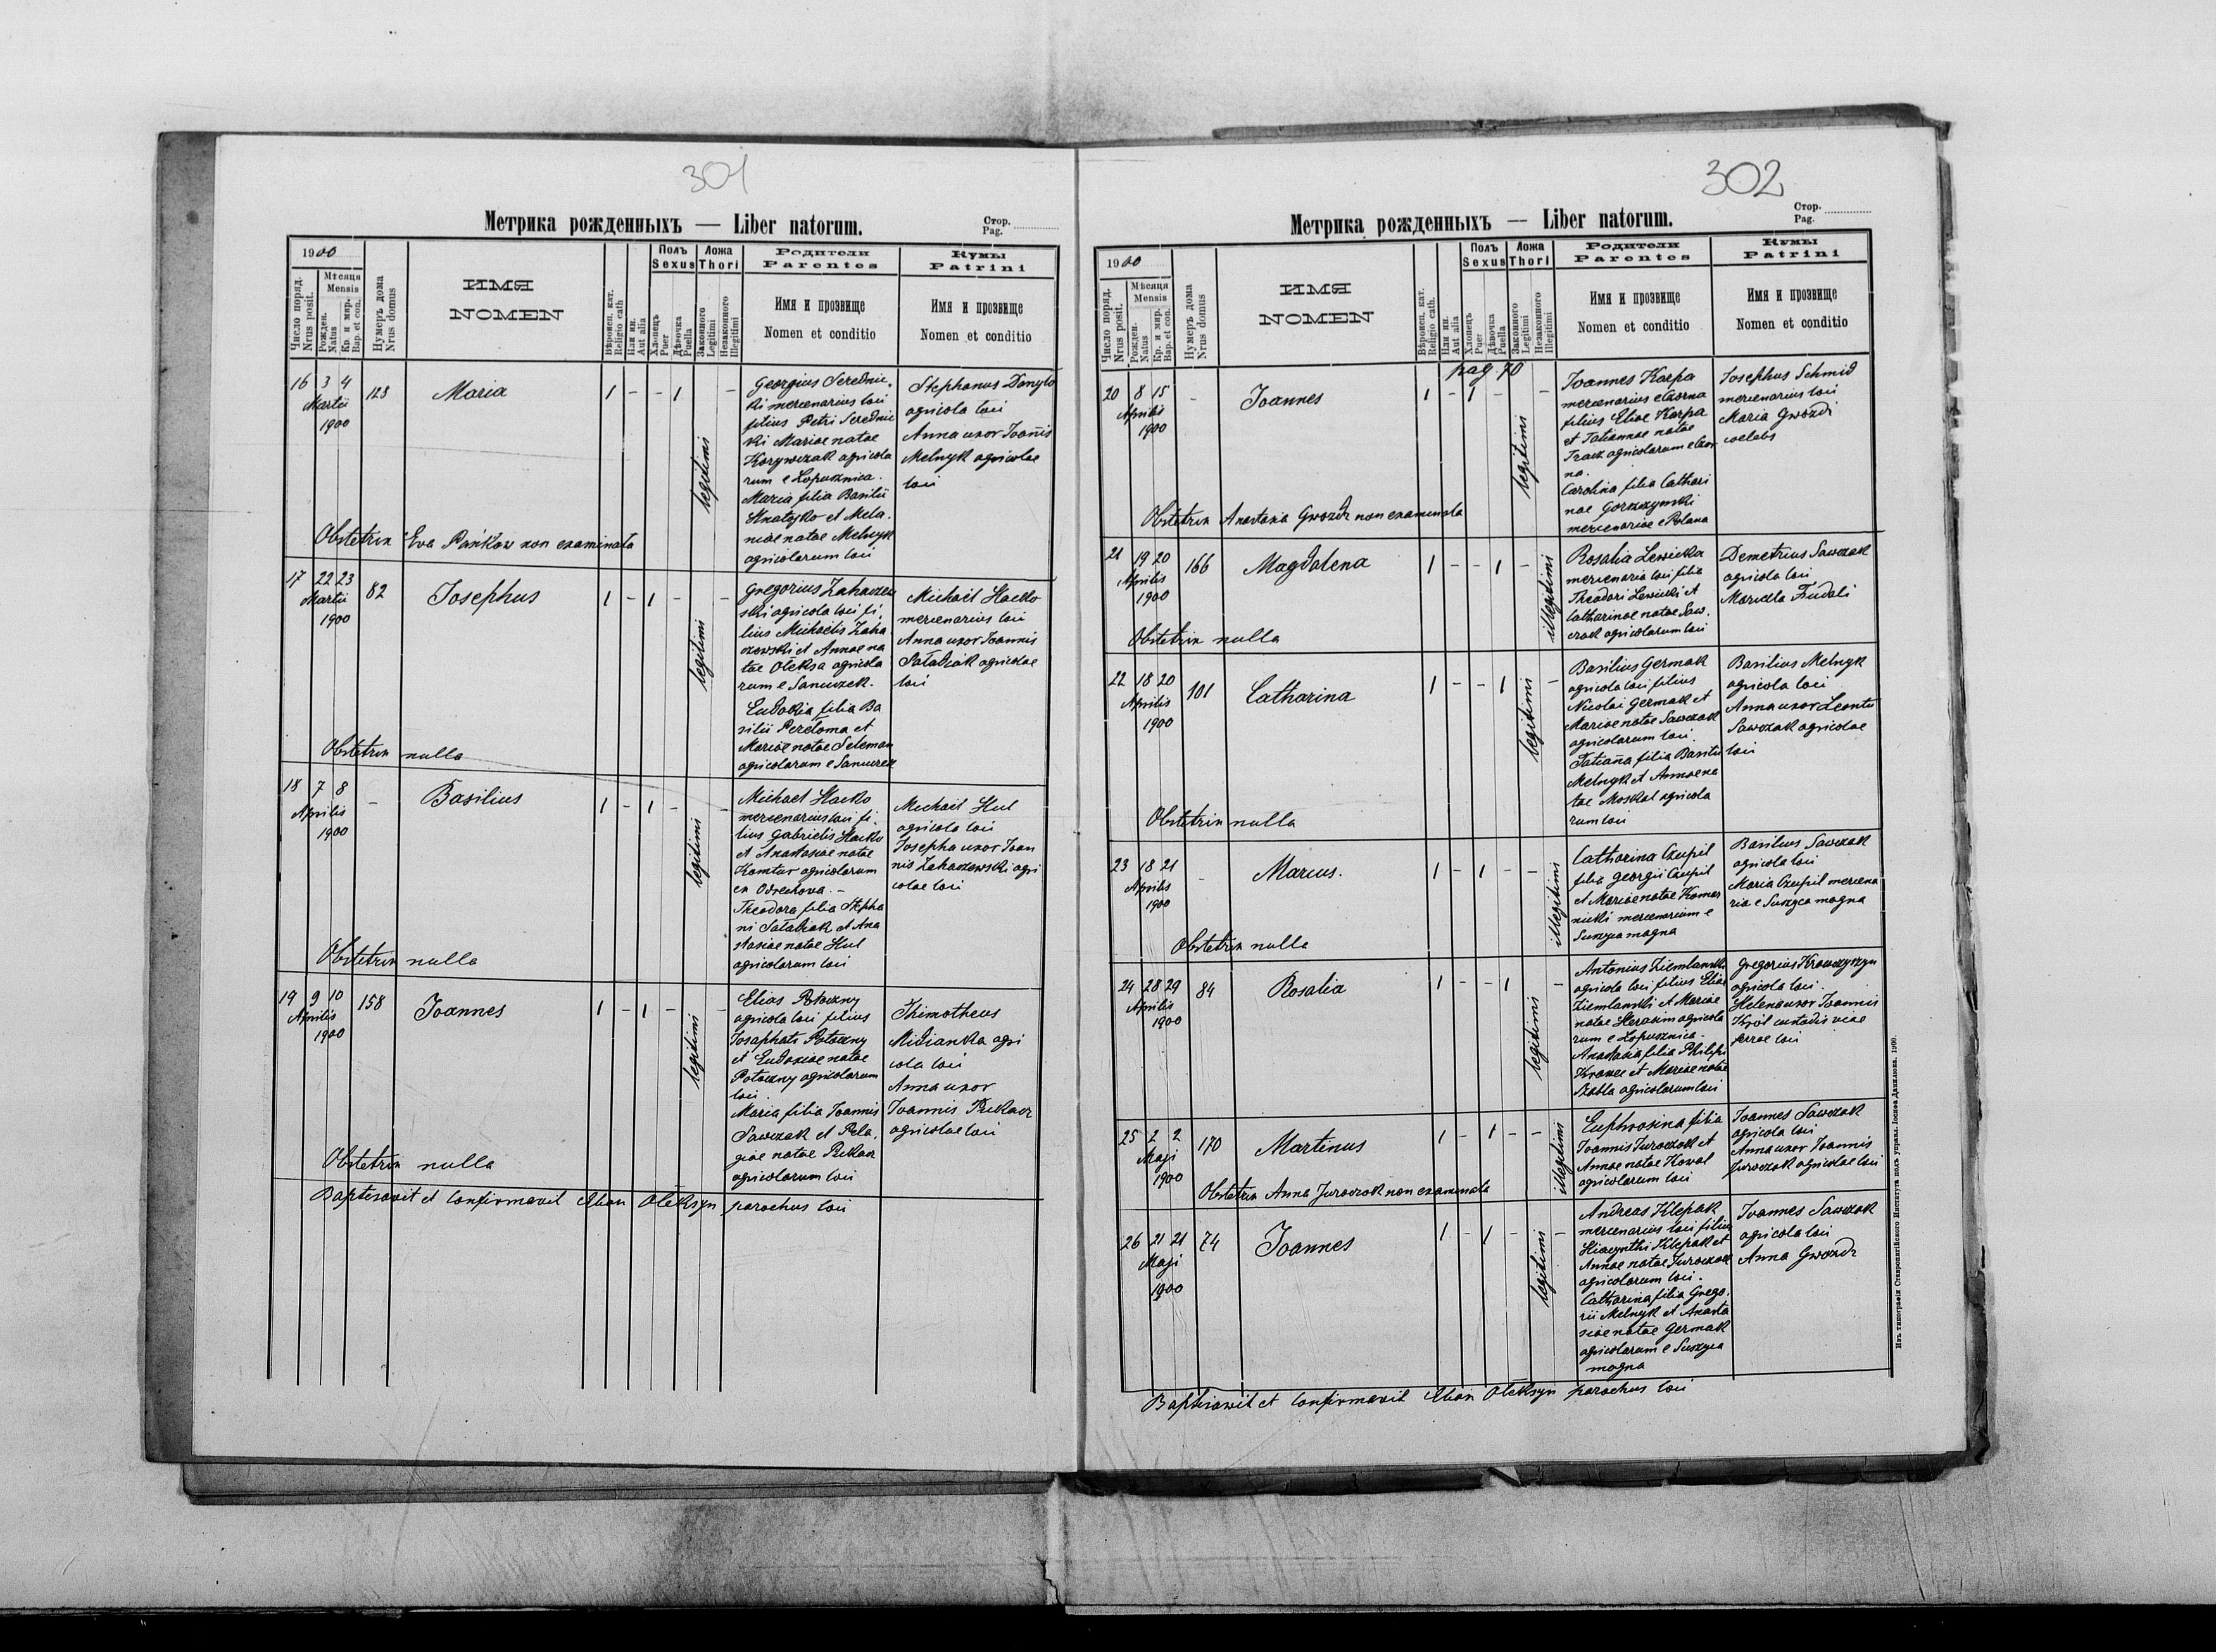 301
Метрика рожденныхъ — Liber natorum.
Стор.
Pag.
1900
Число поряд.
Nrus posit.
Мѣсяця
Mensis
Рожден.
Natus
Кр. и мир.
Bap. et con.
Нумеръ дома
Nrus domus
ИМЯ
NOMEN
Вѣроисп. кат.
Religio cath
Или ин.
Aut alia
Полъ
Sexus
Хлопець
Puer
Дѣвочка
Puella
Ложа
Thori
Законного
Legitimi
Незаконного
Illegitimi
Родители
Parentes
Имя и прозвище
Nomen et conditio
Кумы
Patrini
Имя и прозвище
Nomen et conditio
16 3 4
Martii
1900
123
Maria
1 - - 1
legitimi
-
Georgius Serednic
ki mercenarius loci
filius Petri Serednic
ki Mariae natae
Korywczak agricola
rum e Lopusznica.
Maria filia Basilii
Hnatejko et Mela
niae natae Melnyk
agricolarum loci
Stephanus Danylo
agricola loci
Anna uxor Joanis
Melnyk agricolae
loci
Obstetrix Eva Pańkow non examinata
17 22 23
Martii
1900
82
Josephus
1 - 1 -
legitimi
-
Gregorius Zahaczew
ski agricola loci fi
lius Michaelis Zaha
czewski et Annae na
tae Oleksa agricola
rum e Sanuczek.
Eudokia filia Ba
silii Peretoma et
Mariae natae Seleman
agricolarum e Sanuczek
Michael Hacko
mercenarius loci
Anna uxor Joannis
Sałabiak agricolae
loci
Obstetrix nulla
18 7 8
Aprilis
1900
-
Basilius
1 - 1 -
legitimi
-
Michael Hacko
mercenarius loci fi
lius Gabrielis Hacko
et Anastasiae natae
Komtur agricolarum
ex Odrechowa. -
Theodora filia Stepha
ni Sałabiak et Ana
stasiae natae Hul
agricolarum loci
Michael Hul
agricola loci
Josepha uxor Joan
nis Zahaczewski agri
colae loci
Obstetrix nulla
19 9 10
Aprilis
1900
158
Joannes
1 - 1 -
legitimi
-
Elias Potoczny
agricola loci filius
Josaphati Potoczny
et Eudoxiae natae
Potoczny agricolarum
loci.
Maria filia Joannis
Sawczak et Pela
giae natae Pukacz
agricolarum loci
Thimotheus
Midianka agri
cola loci
Anna uxor
Joannis Pukacz
agricolae loci
Obstetrix nulla
Baptisavit et confirmavit Oleksyn parochus loci
302
Метрика рожденныхъ — Liber natorum.
Стор.
Pag.
1900
Число поряд.
Nrus posit.
Мѣсяця
Mensis
Рожден.
Natus
Кр. и мир.
Bap. et con.
Нумеръ дома
Nrus domus
ИМЯ
NOMEN
Вѣроисп. кат.
Religio cath.
Или ин.
Aut alia
Полъ
Sexus
Хлопець
Puer
Дѣвочка
Puella
Ложа
Thori
Законного
Legitimi
Незаконного
Illegitimi
Родители
Parentes
Имя и прозвище
Nomen et conditio
Кумы
Patrini
Имя и прозвище
Nomen et conditio
pag. 70
20 8 15
Aprilis
1900
-
Joannes
1 - 1 -
legitimi
-
Joannes Karpa
mercenarius e Czorna
filius Eliae Karpa
et Tatiannae natae
Tracz agricolarum e Czor
na.
Carolina filia Cathari
nae Gorczzynski
mercenariae e Polana
Josephus Schmid
mercenarius loci
Maria Gwozdz
coelebs
Obstetrix Anastasia Gwozdz non examinata
21 19 20
Aprilis
1900
166
Magdalena
1 - - 1 -
illegitimi
Rosalia Lewicka
mercenaria loci filia
Theodori Lewicki et
Catharinae natae Saw
czak agricolarum loci
Demetrius Sawczak
agricola loci
Mariella Fiudali
Obstetrix nulla
22 18 20
Aprilis
1900
101
Catharina
1 - - 1
legitimi
-
Basilius Germak
agricola loci filius
Nicolai Germak et
Mariae natae Sawczak
agricolarum loci.
Tatiana filia Basilii
Melnyk et Annae na
tae Moskal agricola
rum loci
Basilius Melnyk
agricola loci
Anna uxor Leontii
Sawczak agricolae
loci
Obstetrix nulla
23 18 21
Aprilis
1900
-
Marcus.
1 - 1 - -
illegitimi
Catharina Czupil
filia Georgii Czupil
et Mariae natae Komar
nicki mercenarium e
Suszyca magna
Basilius Sawczak
agricola loci
Maria Czupil mercena
ria e Suszyca magna
Obstetrix nulla
24 28 29
Aprilis
1900
84
Rosalia
1 - - 1
legitimi
-
Antonius Ziemlanski
agricola loci filius Eliae
Ziemlanski et Mariae
natae Herasim agricola
rum e Lopusznica.
Anastasia filia Philipi
Krawec et Mariae natae
Szabla agricolarum loci
Gregorius Krawczyszyn
agricola loci.
Helena uxor Joannis
Król custodis viae
ferrae loci
25 2 2
Maji
1900
170
Martinus
1 - 1 - -
illegitimi
Euphrosina filia
Joannis Juroczak et
Annae natae Kowal
agricolarum loci
Joannes Sawczak
agricola loci
Anna uxor Joannis
Juroczak agricolae loci
Obstetrix Anna Juroczak non examinata
26 21 21
Maji
1900
74
Joannes
1 - 1 -
legitimi
-
Andreas Klepak
mercenarius loci filius
Hiacynthi Klepak et
Annae natae Juroczak
agricolarum loci.
Catharina filia Grego
rii Melnyk et Anasta
siae natae Germak
agricolarum e Suszyca
magna
Joannes Sawczak
agricola loci
Anna Gwozdz
Baptisavit et confirmavit Oleksyn parochus loci
Изъ типографіи Ставропигійского Института подъ управл. Іосифа Данилюка. 1900.